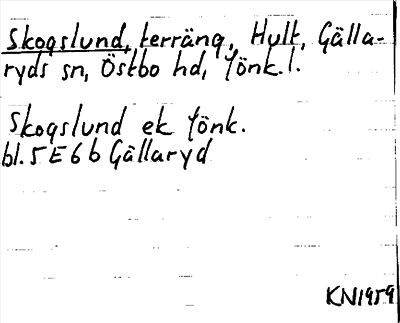 Skogslund, terräng, Hult, Gälla-
ryds sn, Östbo hd, Jönk.l.
Skogslund ek Jönk.
bl. 5 E 6 b Gällaryd
KN1959